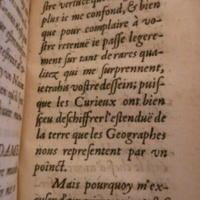 stre vertuë que
plus ie me confond, & bien
que pour complaire à vo-
stre retenuë ie passe legere-
ment sur tant de rares qua-
litez qui me surprennent,
ie trahis vostre dessein; puis-
que les Curieux ont bien
sçeu deschiffrer l'estenduë de
la terre que les Geographes
nous representent par vn
poinct.
Mais pourquoy m'ex-